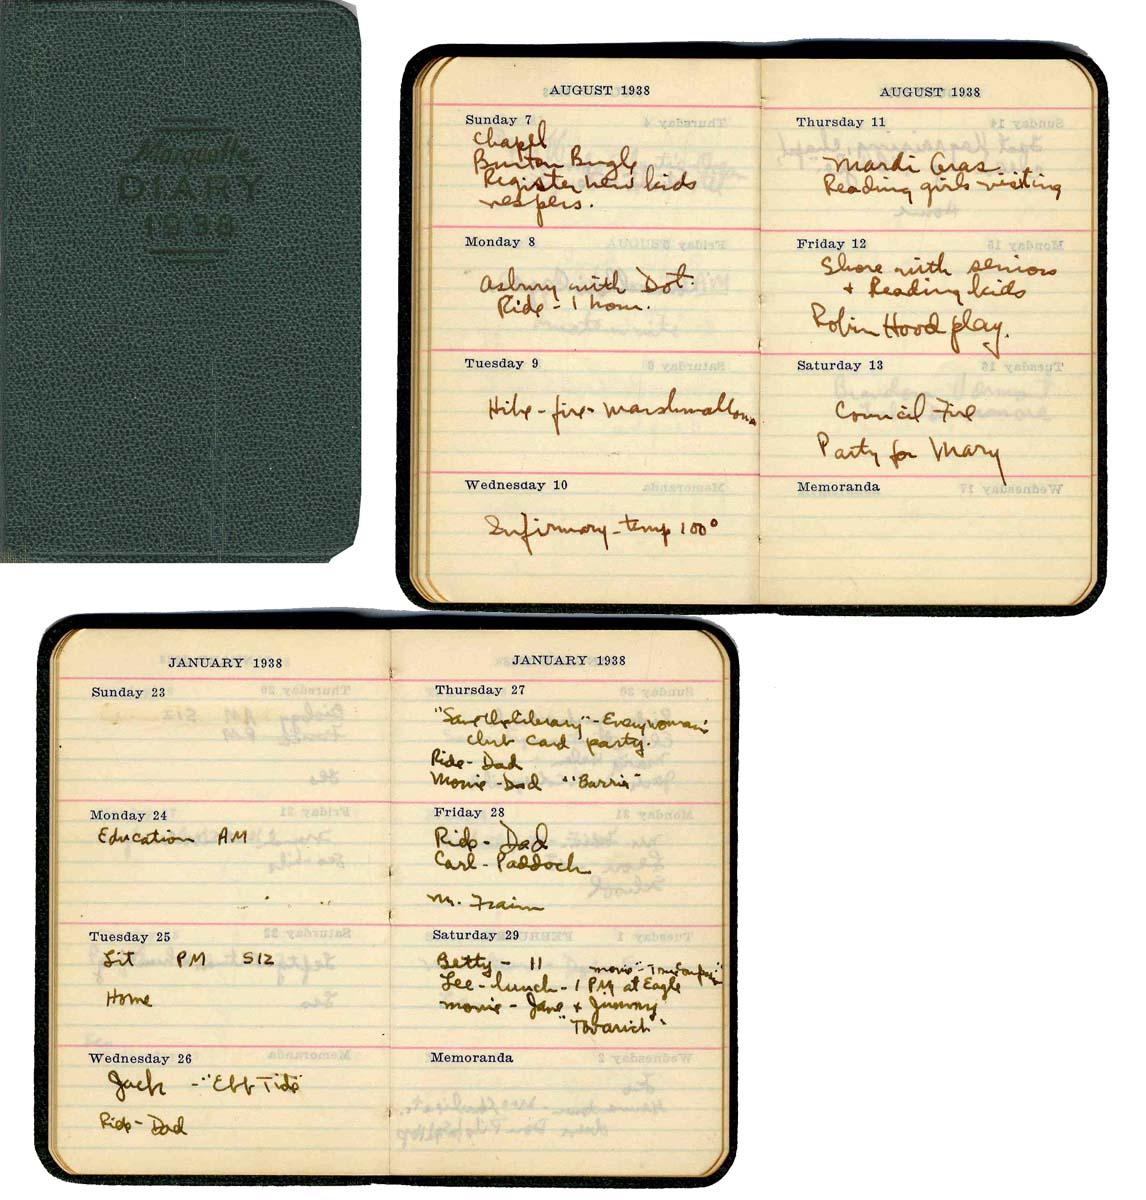 Marquette
DIARY
1938
AUGUST 1938
Sunday 7
Chapel
Burton Bugle
Register new kids
vespers.
Monday 8
Asbury with Dot.
Ride - 1 hour.
Tuesday 9
Hike - fire - marshmallows
Wednesday 10
Infirmary - temp 100°
AUGUST 1938
Thursday 11
Mardi Gras.
Reading girls visiting
Friday 12
Shore with seniors
+ Reading kids
Robin Hood play.
Saturday 13
Council Fire
Party for Mary
Memoranda
JANUARY 1938
Sunday 23
Monday 24
Education AM
Tuesday 25
Lit PM 512
Home
Wednesday 26
Jack - "Ebb Tide"
Ride - Dad
JANUARY 1938
Thursday 27
- Everywoman's
club card party.
Ride - Dad
Movie - Dad "Barrie"
Friday 28
Ride - Dad
Carl - Paddock
M.
Saturday 29
Betty - 11 movie -
Lee - lunch - 1 PM at Eagle
movie - Jane + Jimmy
"Tovarich"
Memoranda